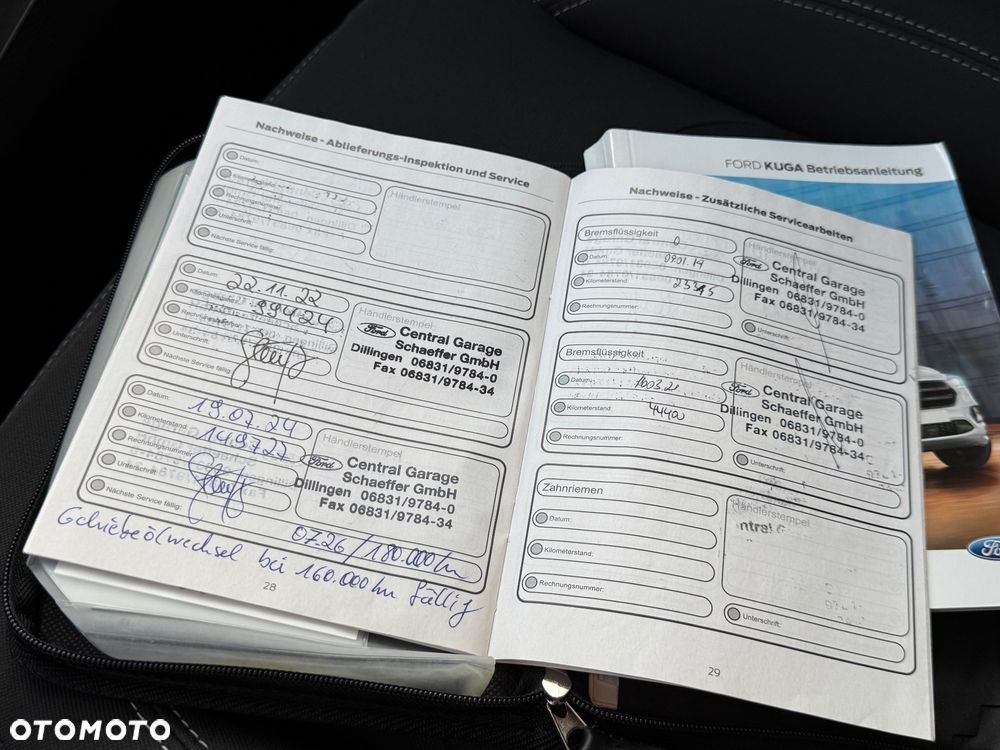 Nachweise - Ablieferungs-Inspektion und Service
Datum:
Kilometerstand:
Rechnungsnummer:
Unterschrift:
Nächste Service fällig:
Händlerstempel
Datum:
22.11.22
Kilometerstand:
99424
Rechnungsnummer:
Unterschrift:
Nächste Service fällig:
Händlerstempel
Ford Central Garage
Schaeffer GmbH
Dillingen 06831/9784-0
Fax 06831/9784-34
Datum:
19.07.24
Kilometerstand:
149727
Rechnungsnummer:
Unterschrift:
Nächste Service fällig:
Händlerstempel
Ford Central Garage
Schaeffer GmbH
Dillingen 06831/9784-0
Fax 06831/9784-34
07.26/180.000km
Getriebeölwechsel bei 160.000km fällig
28
Nachweise - Zusätzliche Servicearbeiten
Bremsflüssigkeit
Datum:
09.01.19
Kilometerstand:
Rechnungsnummer:
Händlerstempel
Ford Central Garage
Schaeffer GmbH
Dillingen 06831/9784-0
Fax 06831/9784-34
Unterschrift:
Bremsflüssigkeit
Datum:
Kilometerstand:
Rechnungsnummer:
Händlerstempel
Ford Central Garage
Schaeffer GmbH
Dillingen 06831/9784-0
Fax 06831/9784-34
Unterschrift:
Zahnriemen
Datum:
Kilometerstand:
Rechnungsnummer:
Händlerstempel
Unterschrift:
29
FORD KUGA Betriebsanleitung
Ford
OTOMOTO